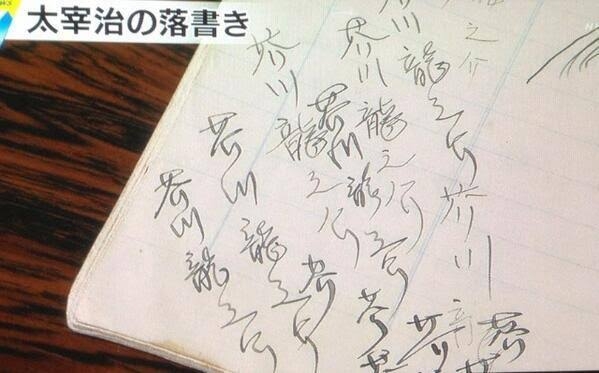 太宰治の落書き
之介
芥川龍之介
芥川
芥川龍之介
芥川龍之介
芥川龍之介
芥川龍之介
芥川龍之介
芥川
龍
芥川
芥